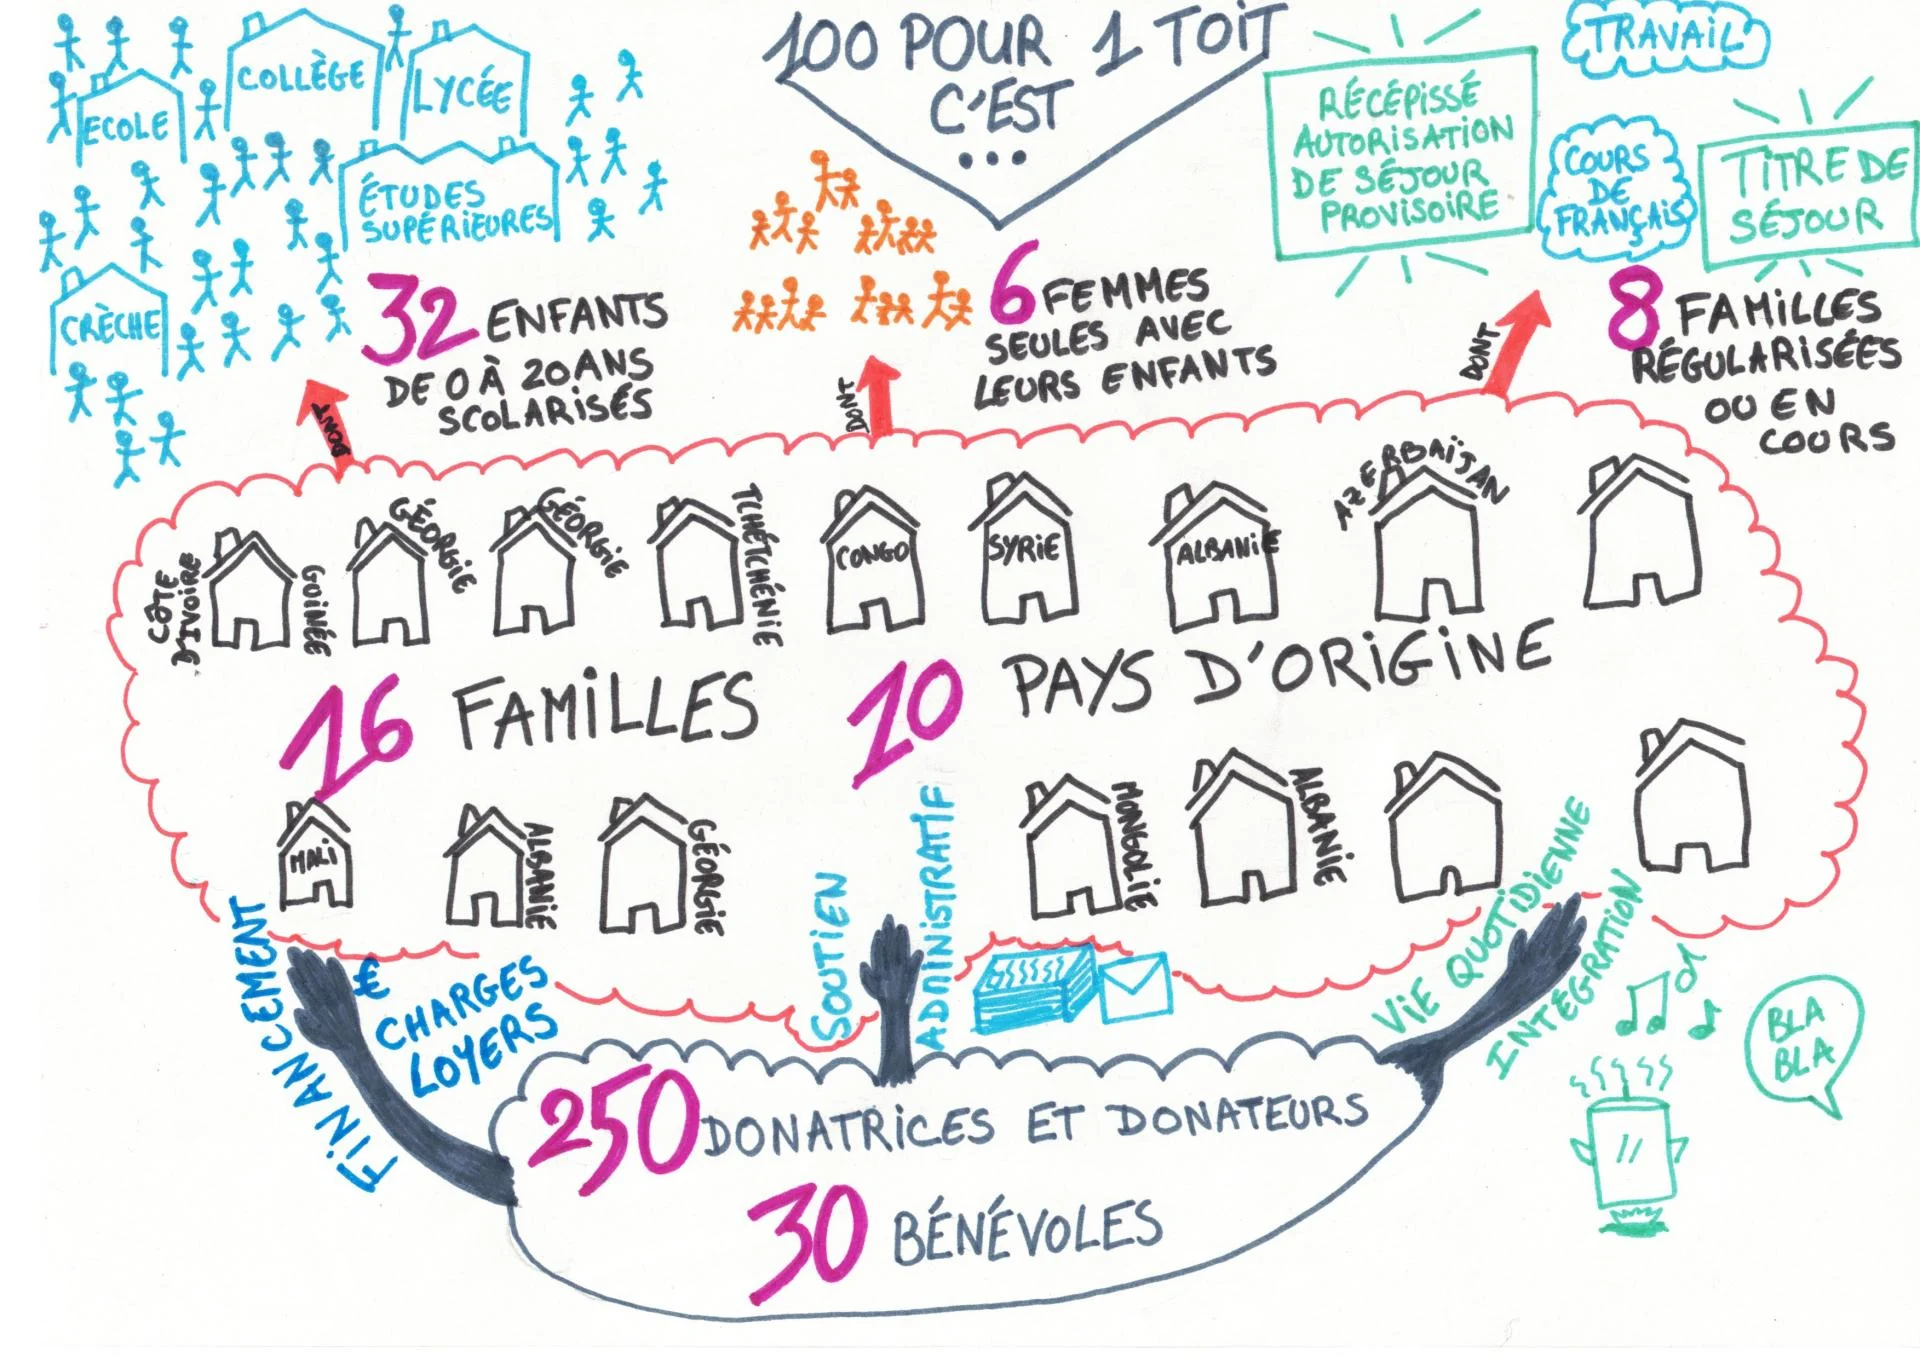 100 POUR 1 TOIT
C'EST
...
COLLÈGE
LYCÉE
ECOLE
ÉTUDES
SUPÉRIEURES
CRÈCHE
32 ENFANTS
DE 0 À 20 ANS
SCOLARISÉS
DONT
6 FEMMES
SEULES AVEC
LEURS ENFANTS
DONT
RÉCÉPISSÉ
AUTORISATION
DE SÉJOUR
PROVISOIRE
TRAVAIL
COURS
DE
FRANÇAIS
TITRE DE
SÉJOUR
8 FAMILLES
RÉGULARISÉES
OU EN
COURS
DONT
CÔTE
D'IVOIRE
GUINÉE
GÉORGIE
GÉORGIE
TCHÉTCHÉNIE
CONGO
SYRIE
ALBANIE
AZERBAÏJAN
16 FAMILLES
10 PAYS D'ORIGINE
MALI
ALBANIE
GÉORGIE
MONGOLIE
ALBANIE
FINANCEMENT
€
CHARGES
LOYERS
SOUTIEN
ADMINISTRATIF
VIE QUOTIDIENNE
INTÉGRATION
BLA
BLA
250 DONATRICES ET DONATEURS
30 BÉNÉVOLES